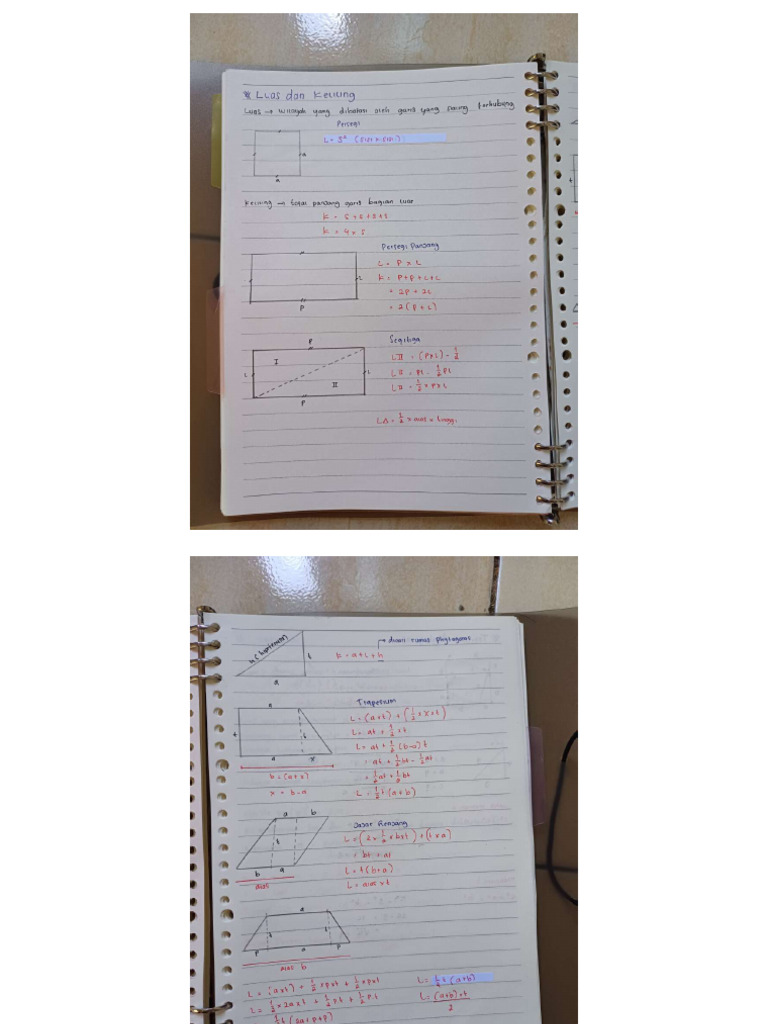 * Luas dan Keliling
Luas → wilayah yang dibatasi oleh garis yang saling terhubung
Persegi
L = S² (sisi x sisi)
s
a
Keliling → total panjang garis bagian luar
K = s + s + s + s
K = 4 x s
Persegi Panjang
L = P x L
K = P + P + L + L
= 2P + 2L
= 2 (P + L)
L
P
Segitiga
P
I
II
L
L
P
L II = (P x L) - 1/2
L II = PL - 1/2 PL
L II = 1/2 x P x L
L△ = 1/2 x alas x tinggi
→ dicari rumus phytagoras
K = a + t + h
h (hipotenusa)
t
a
Trapesium
a
t
t
a
x
b = (a + x)
x = b - a
L = (a x t) + (1/2 x x x t)
L = at + 1/2 xt
L = at + 1/2 (b-a) t
= at + 1/2 bt - 1/2 at
= 1/2 at + 1/2 bt
L = 1/2 t (a + b)
Jajar Genjang
a
b
t
b
a
alas
L = (2 x 1/2 x b x t) + (t x a)
= bt + at
L = t (b + a)
L = alas x t
a
t
t
P
a
P
alas b
L = (a x t) + 1/2 x p x t + 1/2 x p x t
L = 1/2 x 2a x t + 1/2 p t + 1/2 p t
1/2 t (2a + p + p)
L = 1/2 t (a + b)
L = (a + b) x t / 2